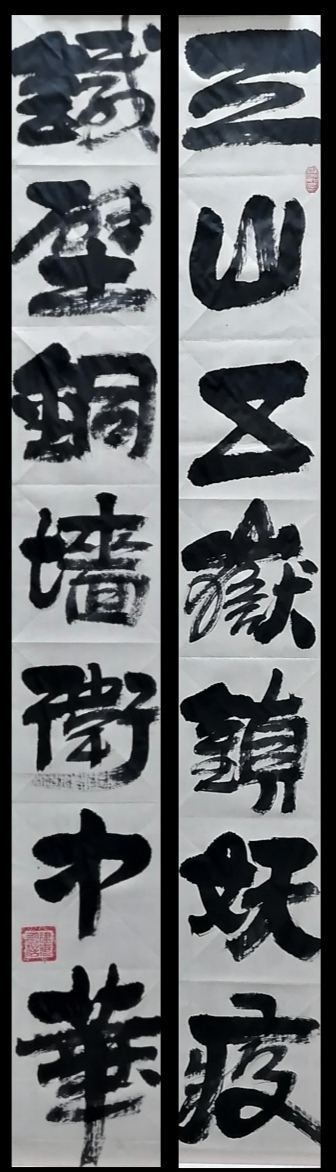 三山五嶽鎮妖疫
鐵壁銅墻衛中華